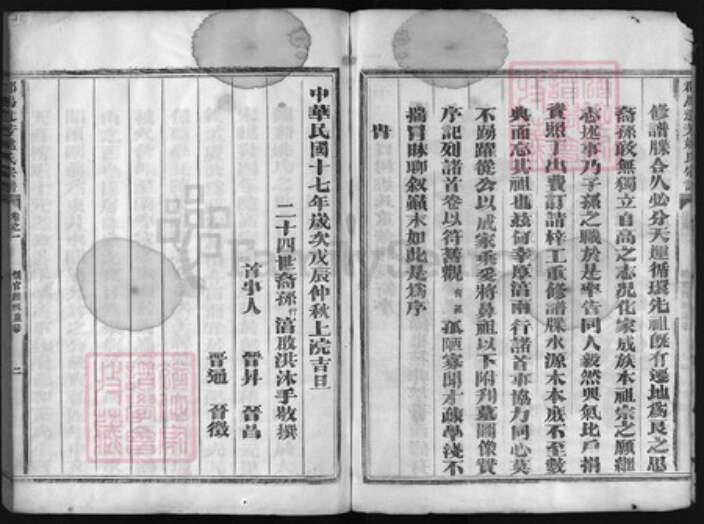 修譜牒合久必分天運循環先祖旣有遷地爲良之思
裔孫敢無獨立自高之志况化家成族本祖宗之願繼
志述事乃子孫之職於是率告同人毅然興氣比戶捐
資照丁出費訂請梓工重修譜牒水源木本庶不至數
典而忘其祖也兹何幸厚滈兩行諸首事協力同心莫
不踴躍從公以成家乘爰將鼻祖以下附刋墓圖像贊
序記列諸首卷以符舊觀 孤陋寡聞才疎學淺不
揣冐昧聊叙顚末如此是爲序
中華民國十七年歲次戊辰仲秋上浣吉旦
二十四世裔孫行滈敢洪沐手敬撰
首事人 晉昇 晉昌
晉通 晉徵
二